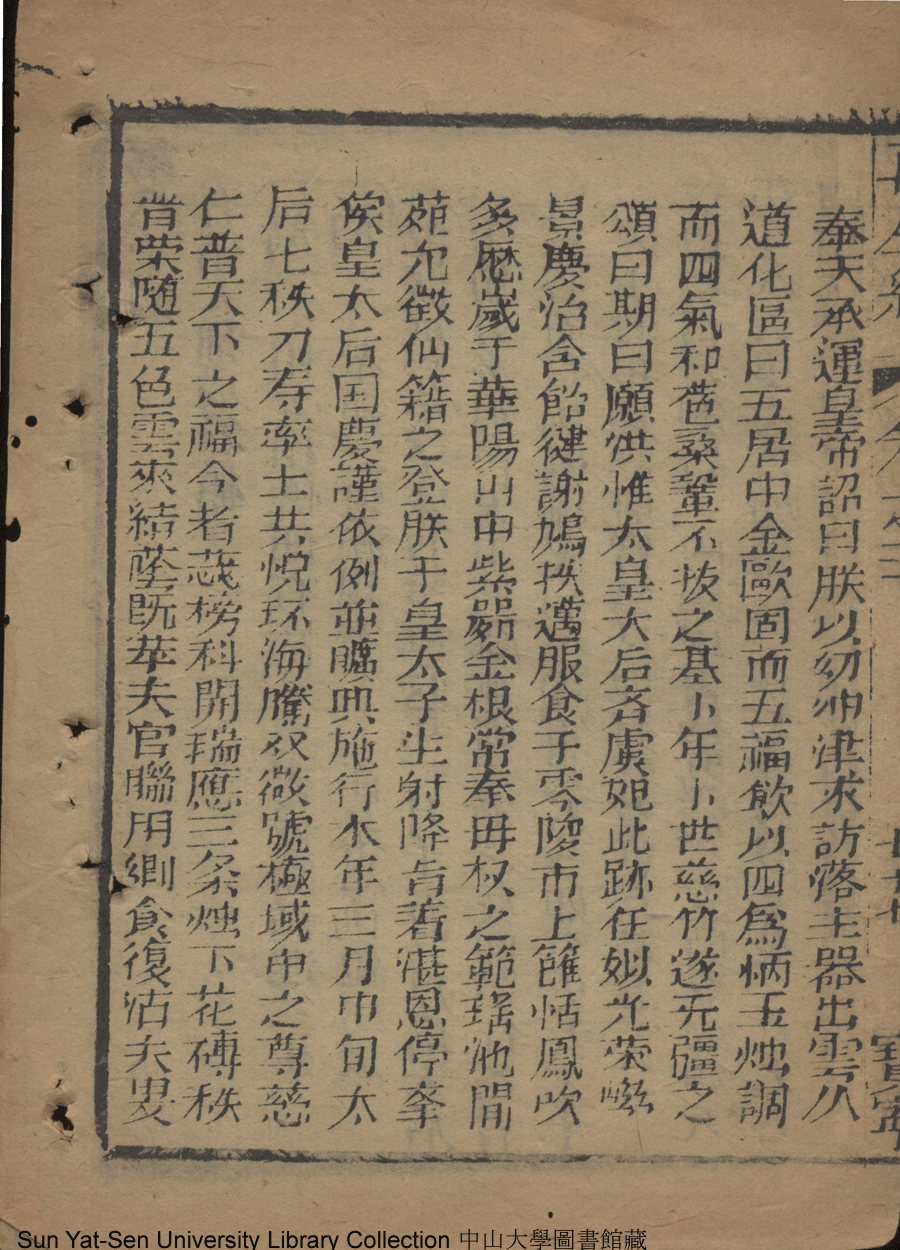 奉天承運皇帝詔曰朕以幼冲津求訪落主器出雲八
道化區曰五居中金歐固而五福飲以四爲柄玉烛調
而四氣和苞桑鞏不拔之基卜年卜世慈竹遂无疆之
頌曰期曰願洪惟太皇大后吝虞妃此跡任姒光荣
景慶治含飴謝鳩扶邁服食于零陵市上恬鳳吹
多歴歲于華陽山中紫金根常奉母杖之範瑤池開
苑允徵仙籍之登朕于皇太子生射降旨着湛恩停奎
俟皇太后国慶謹依例並曠典施行本年三月中旬太
后七秩刀寿率土共悦环海騰双徽號極域中之尊慈
仁普天下之福今者榜科開瑞應三条烛下花磚秩
荣随五色雲來結既萃夫官聯用鄉食復沽夫
七十七